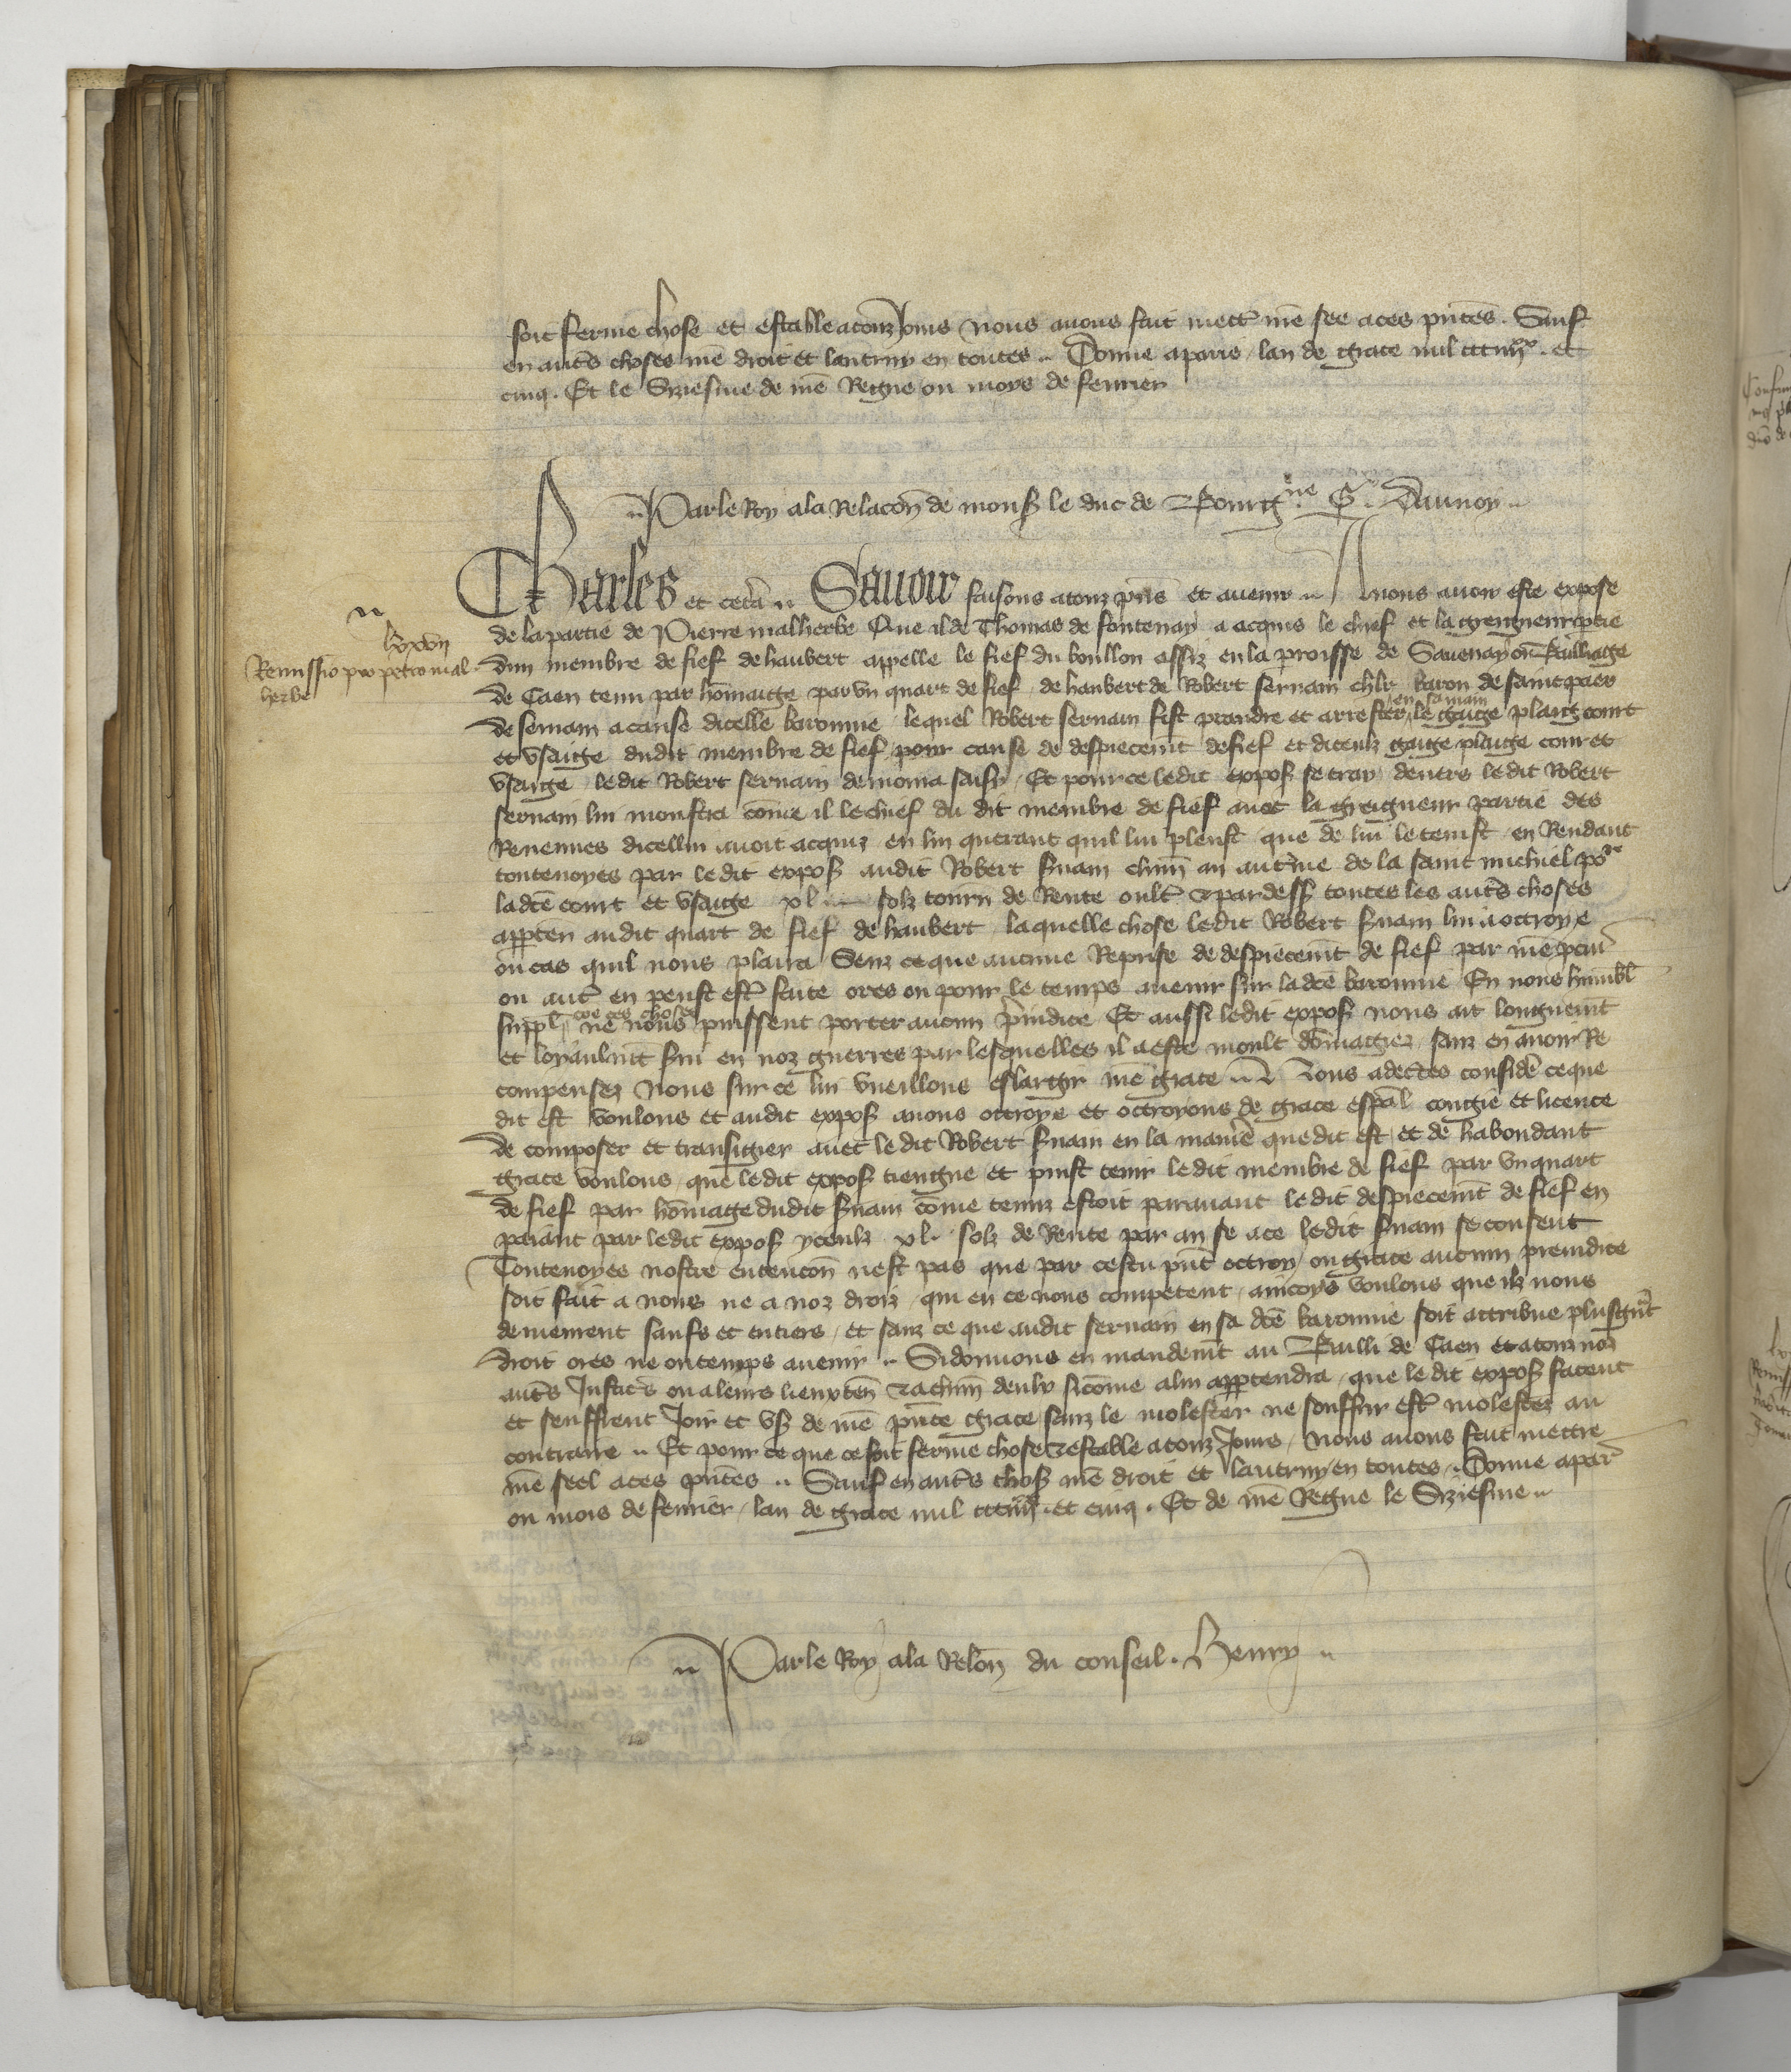 soit ferme chose et estable a touz jours nous avons fait mettr nre seel a ces pntes. Sauf
en autrs choses nre droit et lautruy en toutes. Donne a paris lan de grace mil ccciiiixx. et
cinq. Et le Siziesme de nre Regne ou moys de fevrier
Par le Roy a la Relacon de monsr le duc de Bourgne. G. Daunoy
Charles et cetera Savoir faisons a touz pns et avenir A nous avoir este expose
de la partie de Pierre malherbe Que il de Thomas de fontenay a acquis le chief et la greigneur ptie
dun membre de fief de haubert appelle le fief du boullon assiz en la proisse de Savenay ou bailliage
de Caen tenu par hommaige par un quart de fief de haubert de Robert servain chlr baron de saint paer
en sa main
de servain a cause dicelle baronnie lequel Robert servain fist prandre et arrester le gaige plaig court
et usaige dudit membre de fief pour cause de despiecemt de fief et diceulz gaige plaige court et
usaige ledit Robert servain demoura saisy Et pour ce ledit expos se tray devers ledit Robert
servain lui monstra comme il le chief du dit membre de fief avec la greigneur partie des
Revenues dicellui avoit acquiz en lui querant quil lui pleust que de lui le tenist en Rendant
toutevoyes par ledit expos audit Robert svain chun an autme de la saint michiel por
ladce court et usaige xl solz tourn de Rente oultr et par dess toutes les autrs choses
apparten audit quart de fief de haubert laquelle chose ledit Robert svain lui a octroye
ou cas quil nous plaira Senz ce que aucune Reprise de despiecemt de fief par nre pcur
ou autr en peust estr faite ores ou pour le temps avenir sur ladce baronnie En nous humbl
coe ces choses
suppl ne nous puissent porter aucun preiudice Et aussi ledit expos nous ait longuemt
et loyaulmt svi en noz guerres par lesquelles il a este moult dommagiez sanz en avoir Re
compensez Nous sur ce lui vueillons eslargir nre grace Nous adeces consider ce que
dit est voulons et audit expos avons octroye et octroyons de grace espal congie et licence
de composer et transigier avec ledit Robert svain en la maniere que dit est et de habondant
grace voulons que ledit expos tiengne et puist tenir ledit membre de fief par un quart
de fief par hommage dudit svain comme tenuz estoit paravant ledit despiecemt de fief en
paiant par ledit expos yceulz xl. solz de Rente par an se a ce ledit svain se consent
Toutevoyes nostre entencon nest pas que par cestui pnt octroy ou grace aucun preiudice
soit fait a nous ne a noz droiz qui en ce nous competent aincoys voulons que ilz nous
demeurent saufs et entiers et sanz ce que audit servain en sa dce baronnie soit attribue plus grant
droit ores ne ou temps avenir Si donnons en mandemt au Bailli de Caen et a touz noz
autrs Justicrs ou a leurs lieuxten et a chun deulx sicomme a lui appartendra que ledit expos facent
et seuffrent Joir et us de nre pnte grace sanz le molester ne souffrir estr molestez au
contraire Et pour ce que ce soit ferme chose et estable a touz Jours nous avons fait mettre
nre seel a ces pntes Sauf en autrs chos nre droit et lautruy en toutes Donne a par
ou mois de fevrier lan de grace mil ccciiiixx. et cinq. Et de nre Regne le Siziesme
Par le Roy a la Relon du conseil. Henry
lxxvii
Remissio pro petro mal
herbe